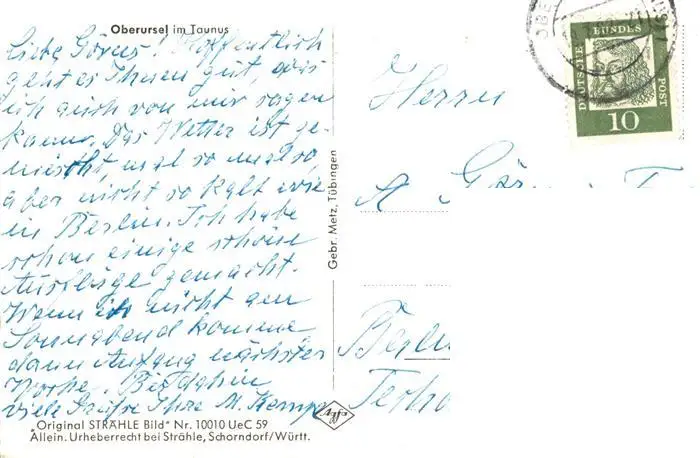 Oberursel im Taunus
Liebe Görns! Hoffentlich
geht es Ihnen gut, was
ich auch von mir sagen
kann. Das Wetter ist ge-
mischt, mal so mal so,
aber nicht so kalt wie
in Berlin. Ich habe
schon einige schöne
Ausflüge gemacht.
Wenn ich nicht am
Sonnabend komme
dann Anfang nächster
Woche. Bis dahin
viele Grüße Ihre M. Kempe
"Original STRÄHLE Bild" Nr. 10010 UeC 59
Allein. Urheberrecht bei Strähle, Schorndorf/Württ.
Gebr. Metz, Tübingen
Agfa
DEUTSCHE
BUNDES
POST
10
Herrn
A.
Berlin